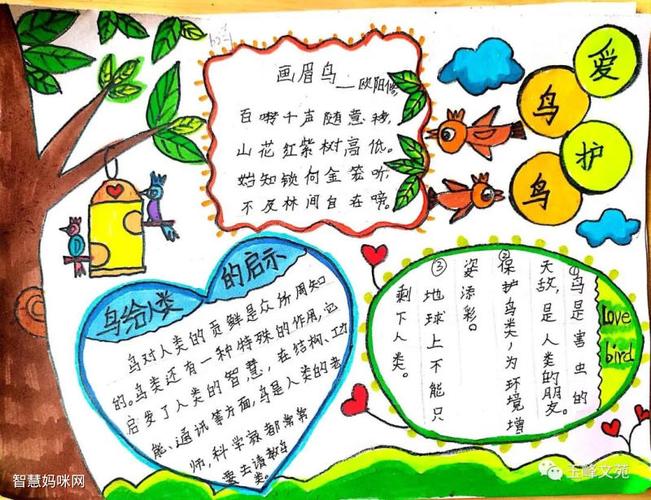 爱鸟护鸟
画眉鸟
—欧阳修
百啭千声随意移,
山花红紫树高低。
始知锁何金笼听
不及林间自在啼。
鸟给人类的启示
鸟对人类的贡鲜是众所周知
的。鸟类还有一种特殊的作用,还
启发了人类的智慧,在结构、功
能、通讯等方面,鸟是人类的老
师,科学家都常常
要去请教鸟
类。
Love
bird
①鸟是害虫的
天敌,是人类的朋友。
②保护鸟类,为环境增
姿添彩。
③地球上不能只
剩下人类。
智慧妈咪网
玉峰文苑